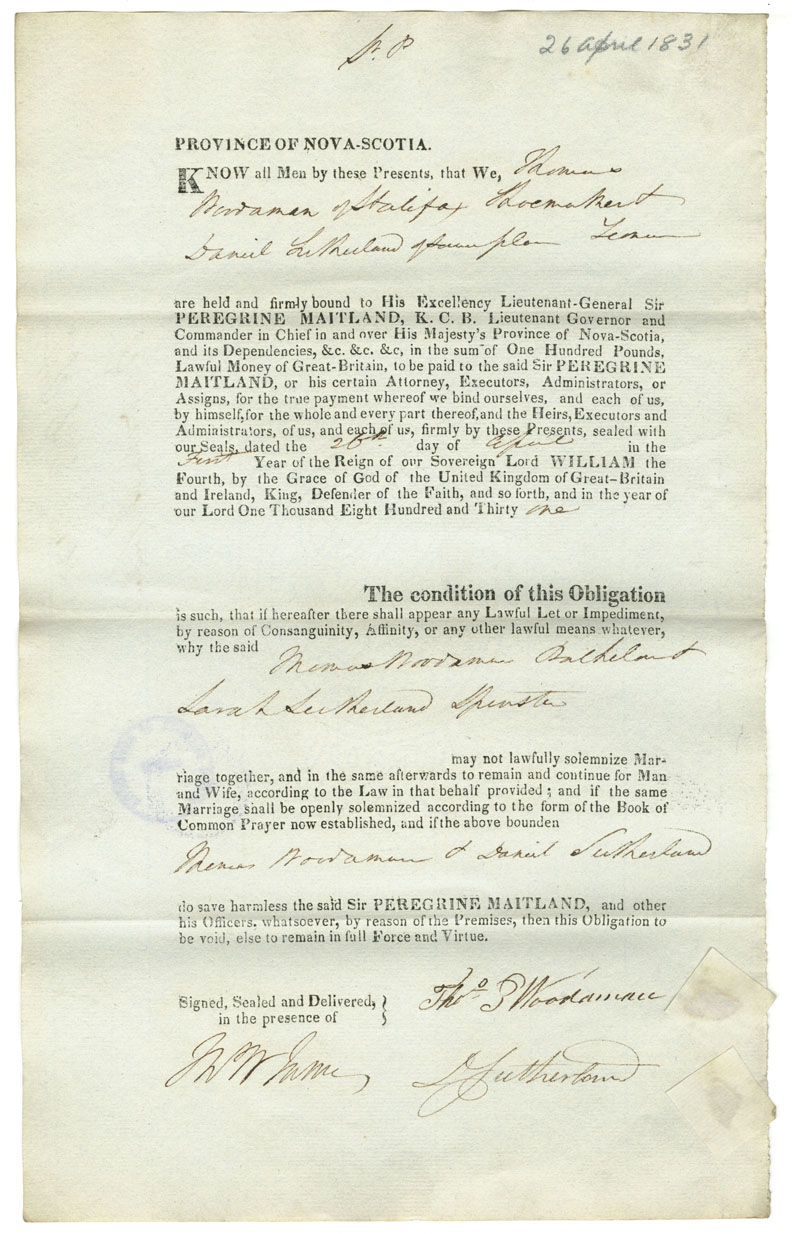 St. P
26 April 1831
PROVINCE OF NOVA-SCOTIA.
KNOW all Men by these Presents, that We, Thomas
Woodaman of Halifax Shoemaker &
Daniel Sutherland of same place
are held and firmly bound to His Excellency Lieutenant-General Sir
PEREGRINE MAITLAND, K. C. B. Lieutenant Governor and
Commander in Chief in and over His Majesty's Province of Nova-Scotia,
and its Dependencies, &c. &c. &c, in the sum of One Hundred Pounds,
Lawful Money of Great-Britain, to be paid to the said Sir PEREGRINE
MAITLAND, or his certain Attorney, Executors, Administrators, or
Assigns, for the true payment whereof we bind ourselves, and each of us,
by himself, for the whole and every part thereof, and the Heirs, Executors and
Administrators, of us, and each of us, firmly by these Presents, sealed with
our Seals, dated the 26th day of April in the
First Year of the Reign of our Sovereign Lord WILLIAM the
Fourth, by the Grace of God of the United Kingdom of Great-Britain
and Ireland, King, Defender of the Faith, and so forth, and in the year of
our Lord One Thousand Eight Hundred and Thirty one
The condition of this Obligation
is such, that if hereafter there shall appear any Lawful Let or Impediment,
by reason of Consanguinity, Affinity, or any other lawful means whatever,
why the said
Thomas Woodaman Bachelor &
Sarah Sutherland Spinster
may not lawfully solemnize Mar-
riage together, and in the same afterwards to remain and continue for Man
and Wife, according to the Law in that behalf provided; and if the same
Marriage shall be openly solemnized according to the form of the Book of
Common Prayer now established, and if the above bounden
Thomas Woodaman & Daniel Sutherland
do save harmless the said Sir PEREGRINE MAITLAND, and other
his Officers, whatsoever, by reason of the Premises, then this Obligation to
be void, else to remain in full Force and Virtue.
Signed, Sealed and Delivered,
in the presence of
Thos P Woodaman
D Sutherland